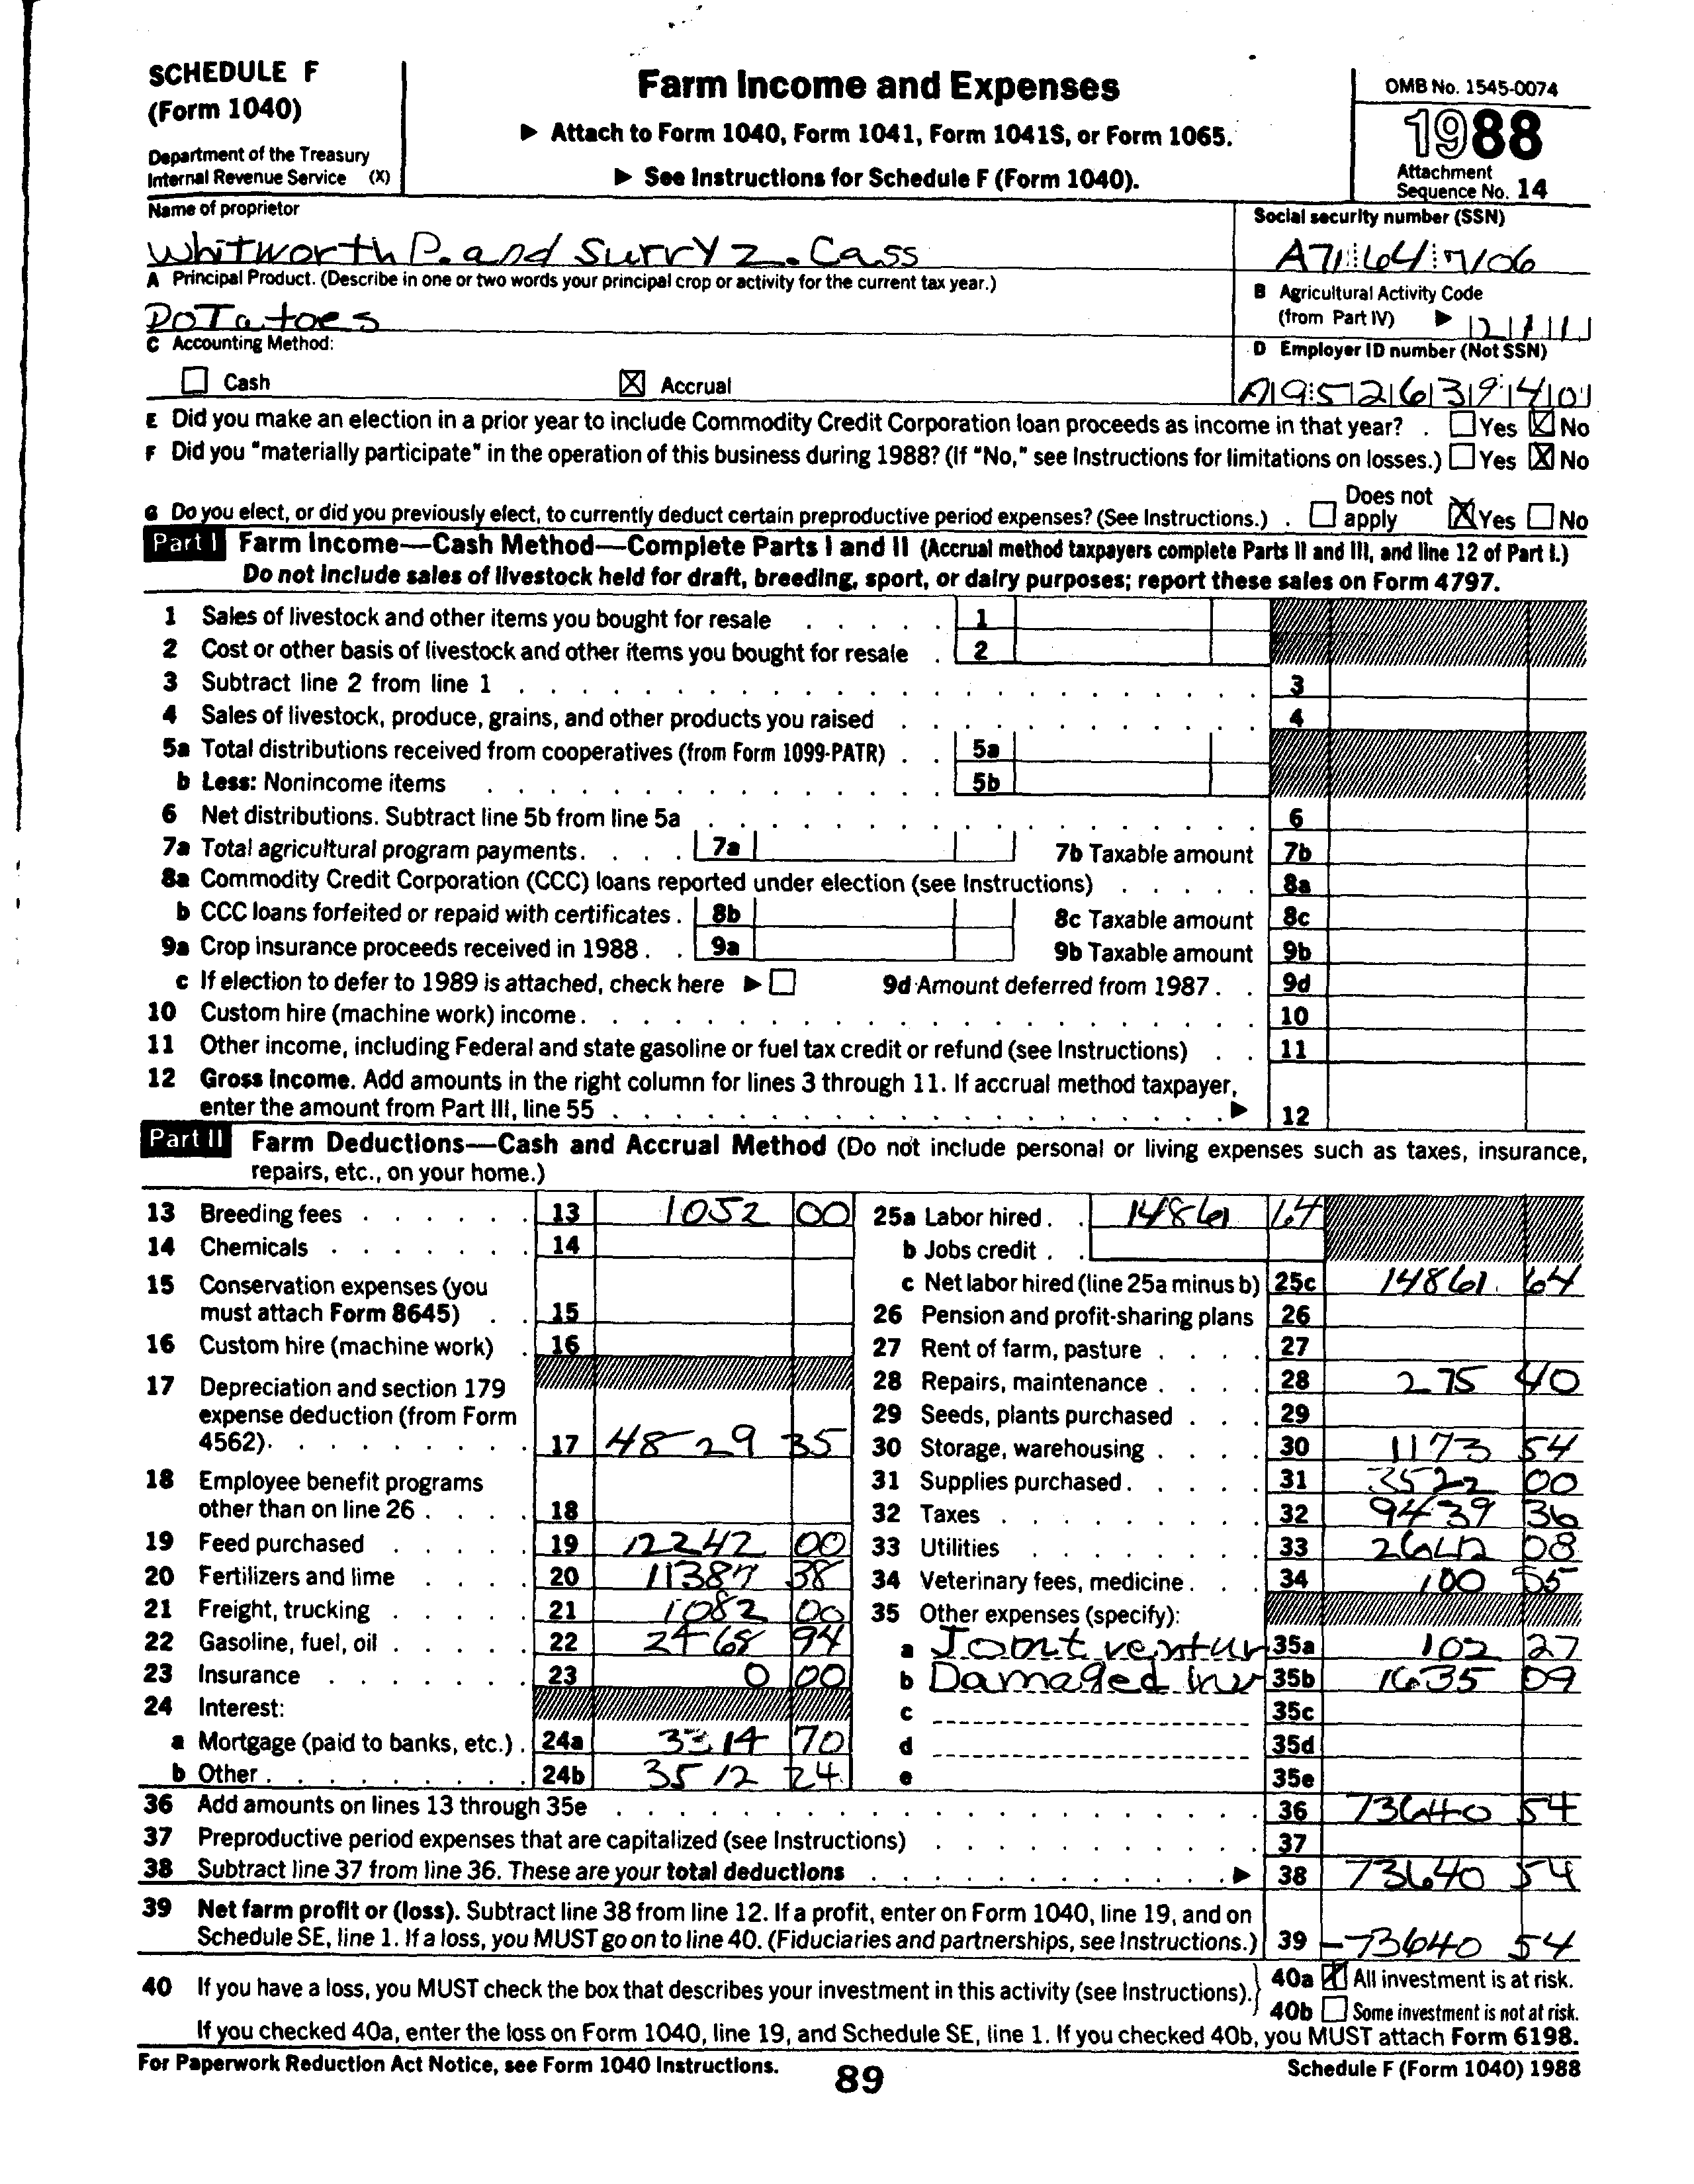 SCHEDULE F
(Form 1040)
Department of the Treasury
Internal Revenue Service (X)
Farm Income and Expenses
▶ Attach to Form 1040, Form 1041, Form 1041S, or Form 1065.
▶ See Instructions for Schedule F (Form 1040).
OMB No. 1545-0074
1988
Attachment
Sequence No. 14
Name of proprietor
Whitworth P. and Surry Z. Cass
Social security number (SSN)
A71 64 7106
A Principal Product. (Describe in one or two words your principal crop or activity for the current tax year.)
PoTatoes
B Agricultural Activity Code
(from Part IV) ▶ 2 1 1
C Accounting Method:
☐ Cash ☒ Accrual
D Employer ID number (Not SSN)
A95263940
E Did you make an election in a prior year to include Commodity Credit Corporation loan proceeds as income in that year? . ☐ Yes ☒ No
F Did you "materially participate" in the operation of this business during 1988? (If "No," see Instructions for limitations on losses.) ☐ Yes ☒ No
G Do you elect, or did you previously elect, to currently deduct certain preproductive period expenses? (See Instructions.) . ☐ Does not apply ☒ Yes ☐ No
Part I Farm Income—Cash Method—Complete Parts I and II (Accrual method taxpayers complete Parts II and III, and line 12 of Part I.)
Do not include sales of livestock held for draft, breeding, sport, or dairy purposes; report these sales on Form 4797.
1 Sales of livestock and other items you bought for resale 1
2 Cost or other basis of livestock and other items you bought for resale 2
3 Subtract line 2 from line 1 3
4 Sales of livestock, produce, grains, and other products you raised 4
5a Total distributions received from cooperatives (from Form 1099-PATR) 5a
b Less: Nonincome items 5b
6 Net distributions. Subtract line 5b from line 5a 6
7a Total agricultural program payments. 7a 7b Taxable amount 7b
8a Commodity Credit Corporation (CCC) loans reported under election (see Instructions) 8a
b CCC loans forfeited or repaid with certificates. 8b 8c Taxable amount 8c
9a Crop insurance proceeds received in 1988. 9a 9b Taxable amount 9b
c If election to defer to 1989 is attached, check here ▶ ☐ 9d Amount deferred from 1987. 9d
10 Custom hire (machine work) income. 10
11 Other income, including Federal and state gasoline or fuel tax credit or refund (see Instructions) 11
12 Gross Income. Add amounts in the right column for lines 3 through 11. If accrual method taxpayer,
enter the amount from Part III, line 55 ▶ 12
Part II Farm Deductions—Cash and Accrual Method (Do not include personal or living expenses such as taxes, insurance,
repairs, etc., on your home.)
13 Breeding fees 13 1052 00
14 Chemicals 14
15 Conservation expenses (you
must attach Form 8645) 15
16 Custom hire (machine work) 16
17 Depreciation and section 179
expense deduction (from Form
4562). 17 4829 35
18 Employee benefit programs
other than on line 26 18
19 Feed purchased 19 12242 00
20 Fertilizers and lime 20 11387 38
21 Freight, trucking 21 1082 00
22 Gasoline, fuel, oil 22 2468 94
23 Insurance 23 0 00
24 Interest:
a Mortgage (paid to banks, etc.) 24a 3314 70
b Other 24b 3512 24
25a Labor hired. 14861 64
b Jobs credit
c Net labor hired (line 25a minus b) 25c 14861 64
26 Pension and profit-sharing plans 26
27 Rent of farm, pasture 27
28 Repairs, maintenance 28 275 40
29 Seeds, plants purchased 29
30 Storage, warehousing 30 1173 54
31 Supplies purchased. 31 3522 00
32 Taxes 32 9439 36
33 Utilities 33 2642 08
34 Veterinary fees, medicine. 34 100 55
35 Other expenses (specify):
a Joint ventur 35a 102 27
b Damaged Inv 35b 1635 09
c 35c
d 35d
e 35e
36 Add amounts on lines 13 through 35e 36 73640 54
37 Preproductive period expenses that are capitalized (see Instructions) 37
38 Subtract line 37 from line 36. These are your total deductions ▶ 38 73640 54
39 Net farm profit or (loss). Subtract line 38 from line 12. If a profit, enter on Form 1040, line 19, and on
Schedule SE, line 1. If a loss, you MUST go on to line 40. (Fiduciaries and partnerships, see Instructions.) 39 -73640 54
40 If you have a loss, you MUST check the box that describes your investment in this activity (see Instructions). 40a ☒ All investment is at risk.
40b ☐ Some investment is not at risk.
If you checked 40a, enter the loss on Form 1040, line 19, and Schedule SE, line 1. If you checked 40b, you MUST attach Form 6198.
For Paperwork Reduction Act Notice, see Form 1040 Instructions.
89
Schedule F (Form 1040) 1988